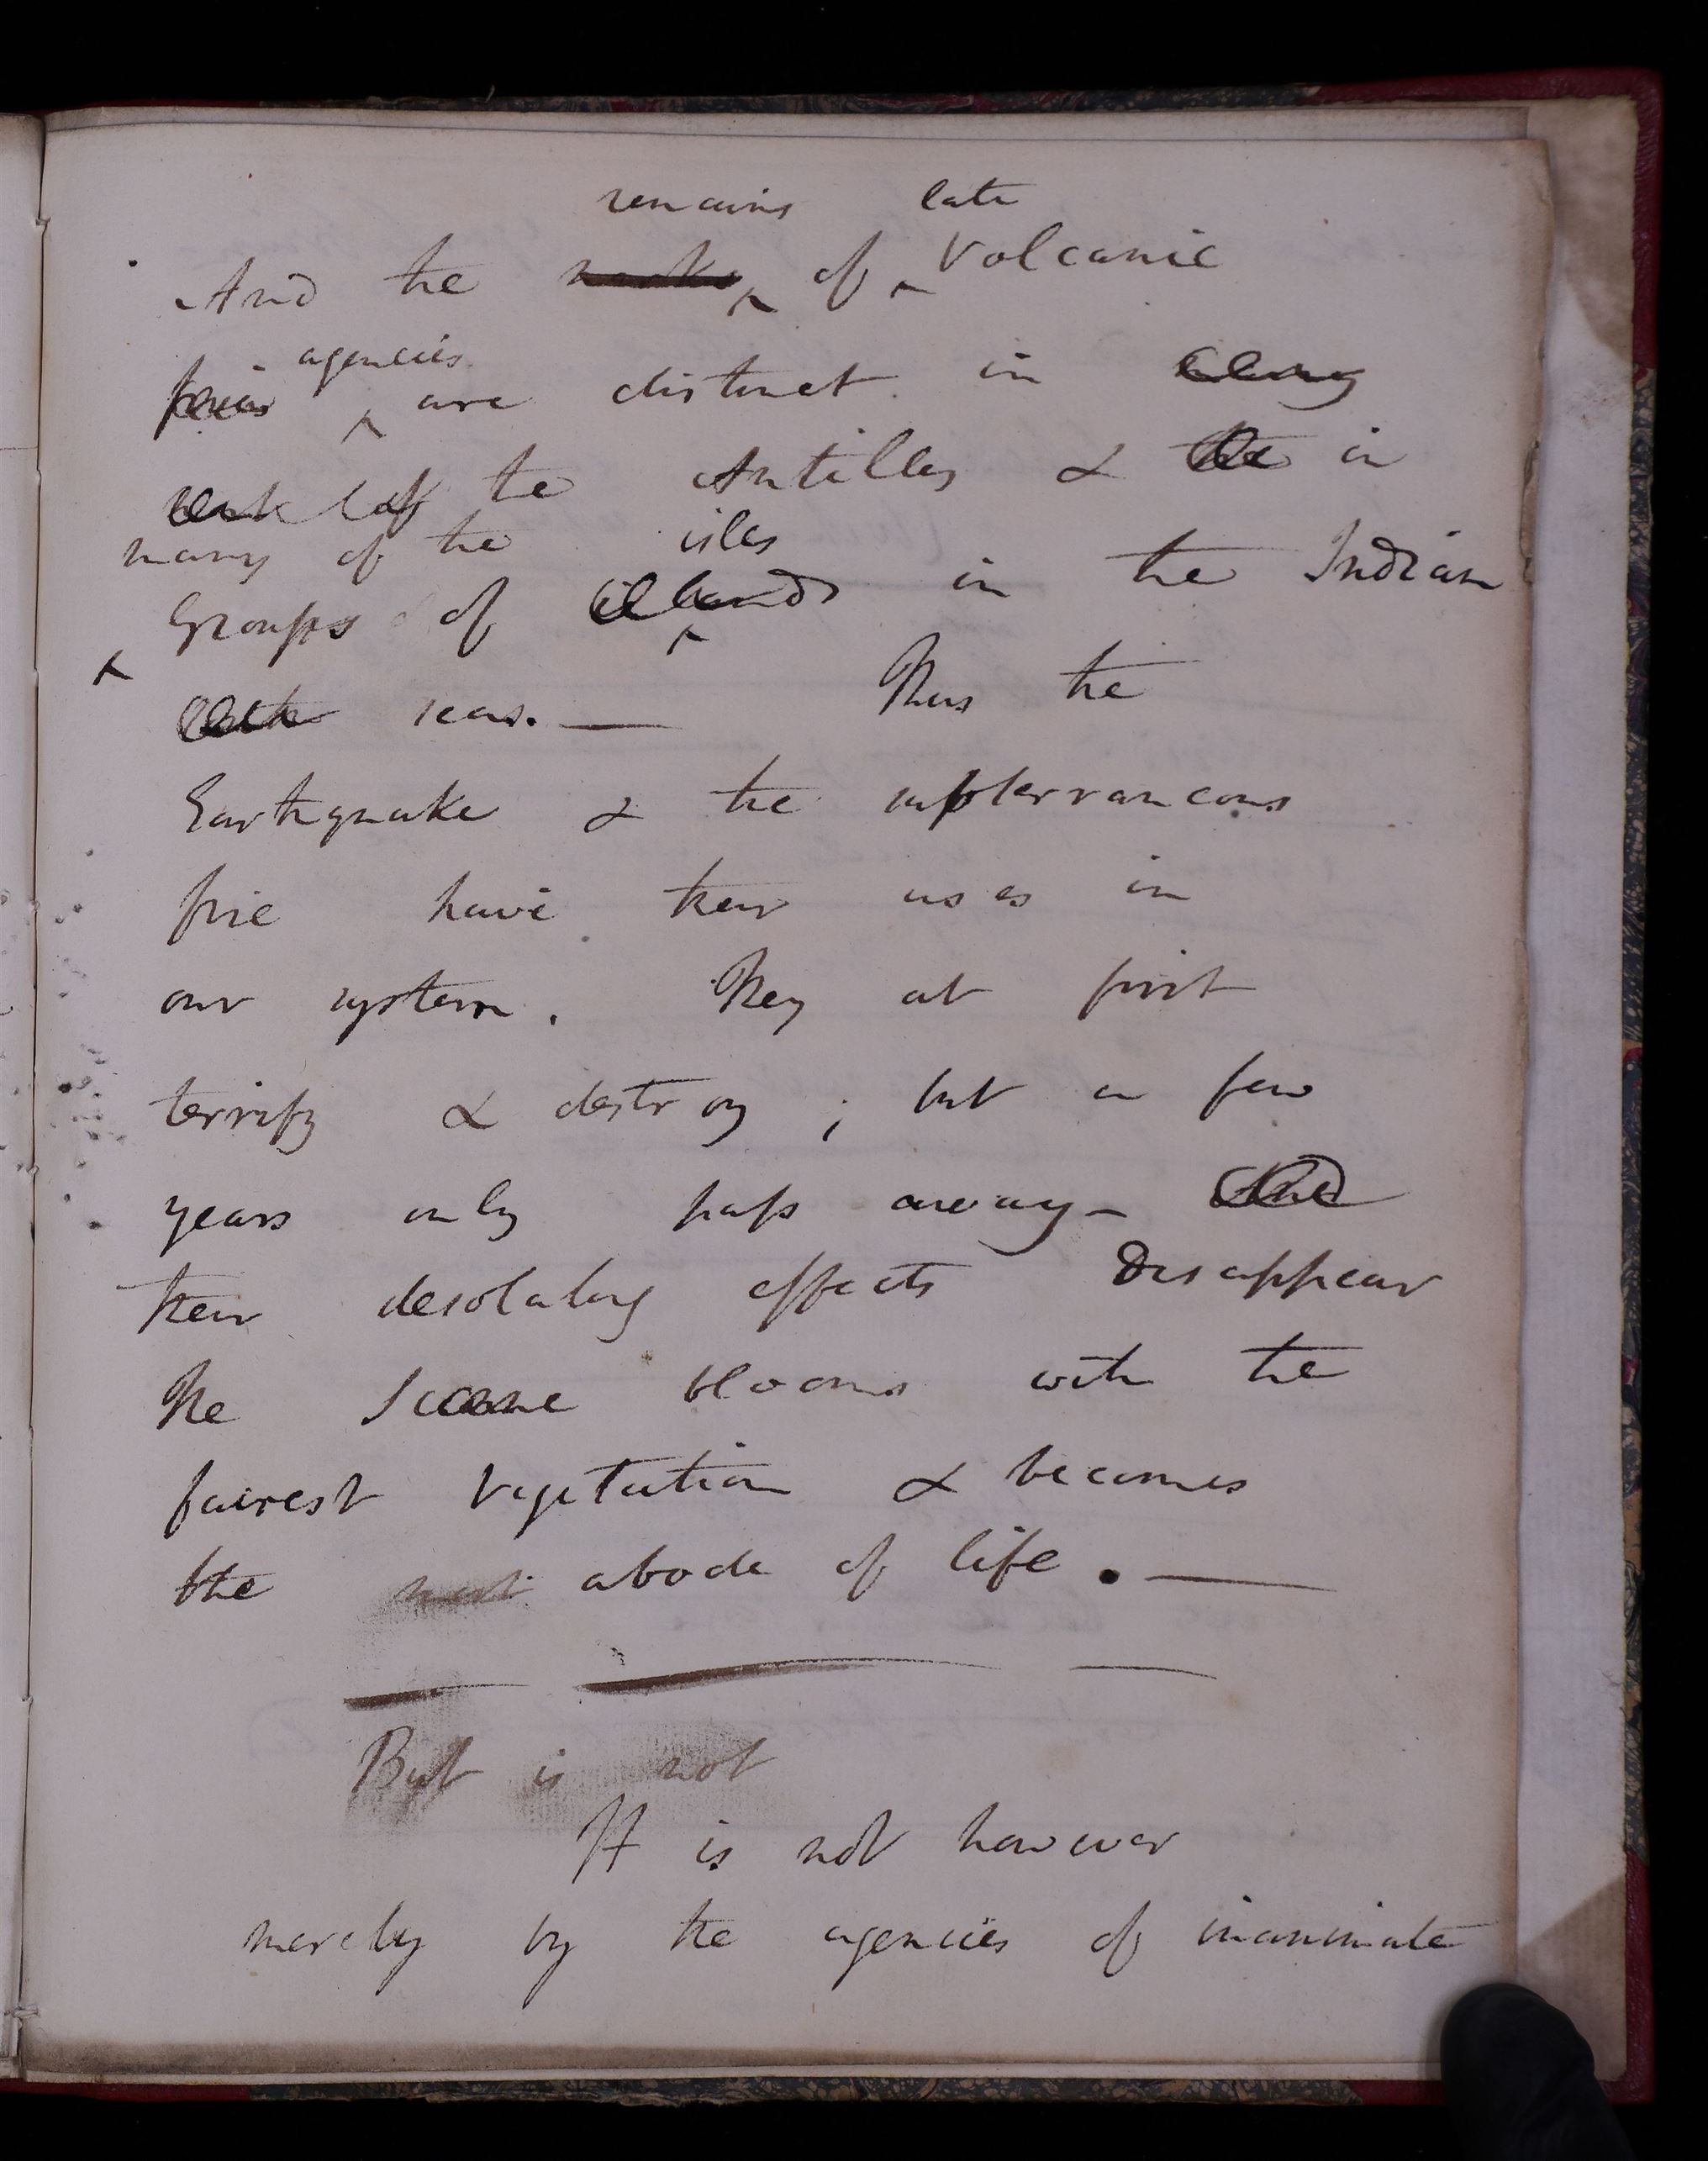 remains late
And the marks of Volcanic
agencies
fires are distinct in
the Antilles & in
many of the isles
Groups of islands in the Indian
seas. — Thus the
Earthquake & the subterraneous
fire have their uses in
our system. They at first
terrify & destroy; but a few
years only pass away –
their desolating effects disappear
The Scene blooms with the
fairest Vegetation & becomes
the abode of life. —
But is not
It is not however
merely by the agencies of inanimate